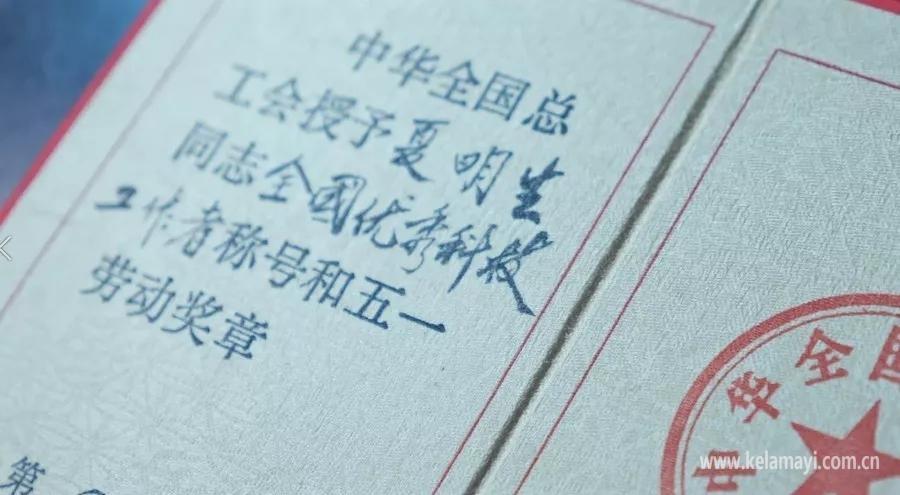 中华全国总
工会授予夏明生
同志全國优秀科技
工作者称号和五一
劳动奖章
第
中华全国
www.kelamayi.com.cn